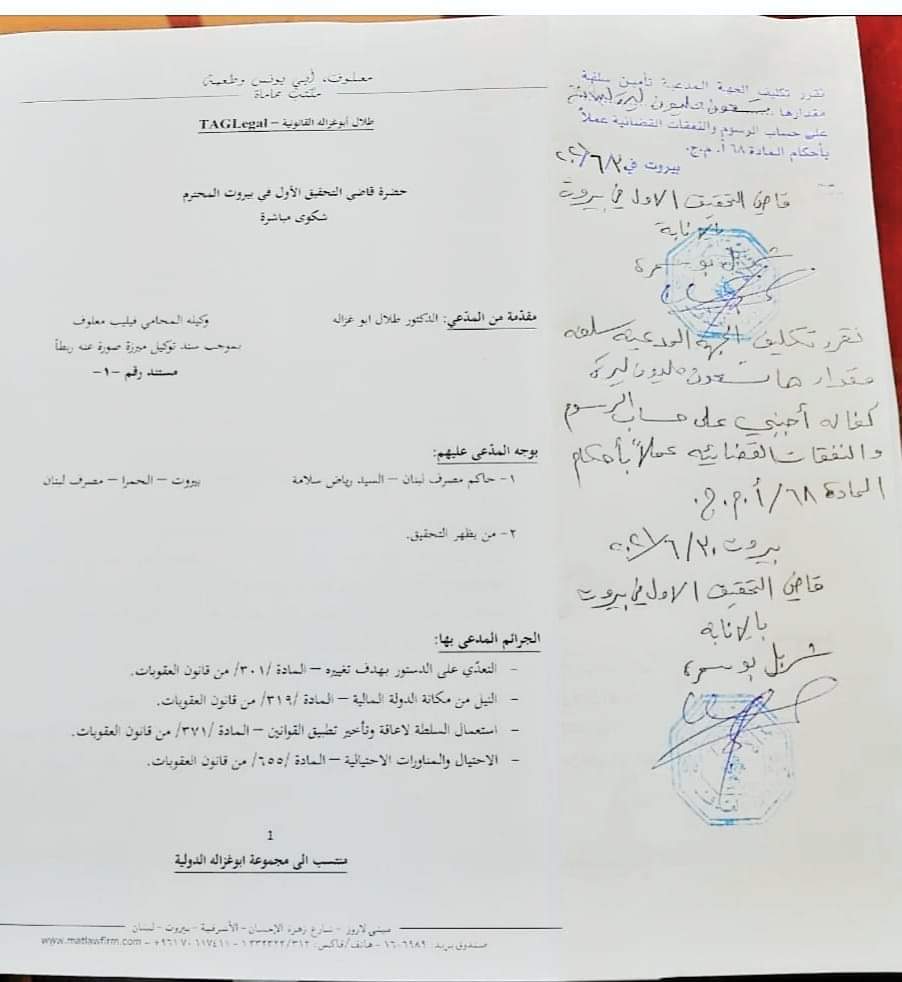 معلوف، أبي يونس وطعمة
مكتب محاماة
طلال أبوغزاله القانونية – TAGLegal
حضرة قاضي التحقيق الأول في بيروت المحترم
شكوى مباشرة
مقدّمة من المدّعي: الدكتور طلال ابو غزاله
وكيله المحامي فيليب معلوف
بموجب سند توكيل مبرزة صورة عنه ربطاً
مستند رقم –١–
بوجه المدّعى عليهم:
١– حاكم مصرف لبنان – السيد رياض سلامة بيروت – الحمرا – مصرف لبنان
٢– من يظهر التحقيق.
الجرائم المدعى بها:
– التعدّي على الدستور بهدف تغييره – المادة /٣٠١/ من قانون العقوبات.
– النيل من مكانة الدولة المالية – المادة /٣١٩/ من قانون العقوبات.
– استعمال السلطة لاعاقة وتأخير تطبيق القوانين – المادة /٣٧١/ من قانون العقوبات.
– الاحتيال والمناورات الاحتيالية – المادة /٦٥٥/ من قانون العقوبات.
1
منتسب الى مجموعة ابوغزاله الدولية
مبنى لازور – شارع زهرة الإحسان – الأشرفية – بيروت – لبنان
صندوق بريد: ١٦٠٦٩٨٩ – هاتف/فاكس: ١٣٣٢٣٢٢/٣١٢ – ٩٦١٧٠٦١٧٤١١+ – www.matlawfirm.com
نقرر تكليف الجهة المدعية تأمين سلفة
مقدارها تسعون مليون ليرة لبنانية
على حساب الرسوم والنفقات القضائية عملاً
بأحكام المادة ٦٨ أ. م.ج.
بيروت في ٢٠٢١/٦/٣
قاضي التحقيق الاول في بيروت
بالإنابة
شربل بو سمرة
نقرر تكليف الجهة المدعية سلفة
مقدارها تسعون مليون ليرة
كفالة أجنبي على حساب الرسوم
والنفقات القضائية عملاً بأحكام
المادة ٦٨/أ.م.ج.
بيروت ٢٠٢١/٦/٣٠
قاضي التحقيق الاول في بيروت
بالإنابة
شربل بو سمرة